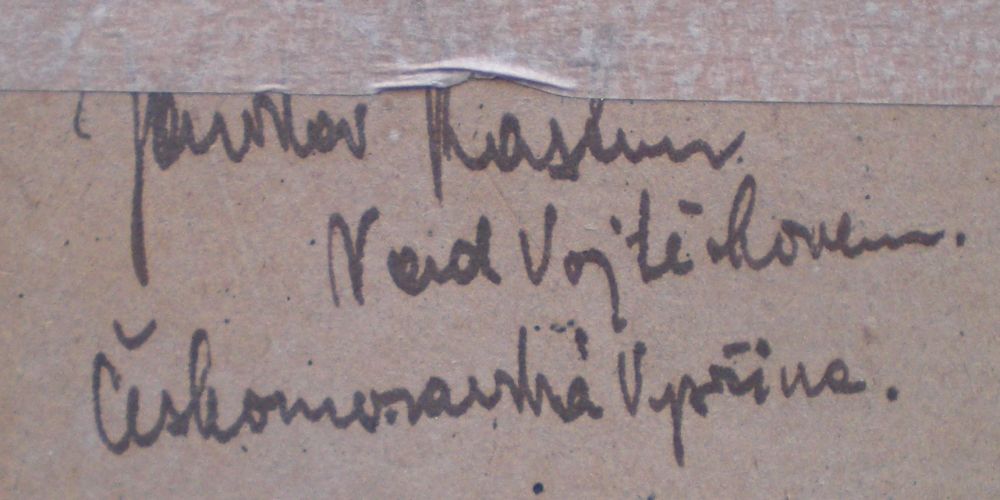 Jaroslav
Nad Vojtěchovem.
Českomoravská Vysočina.